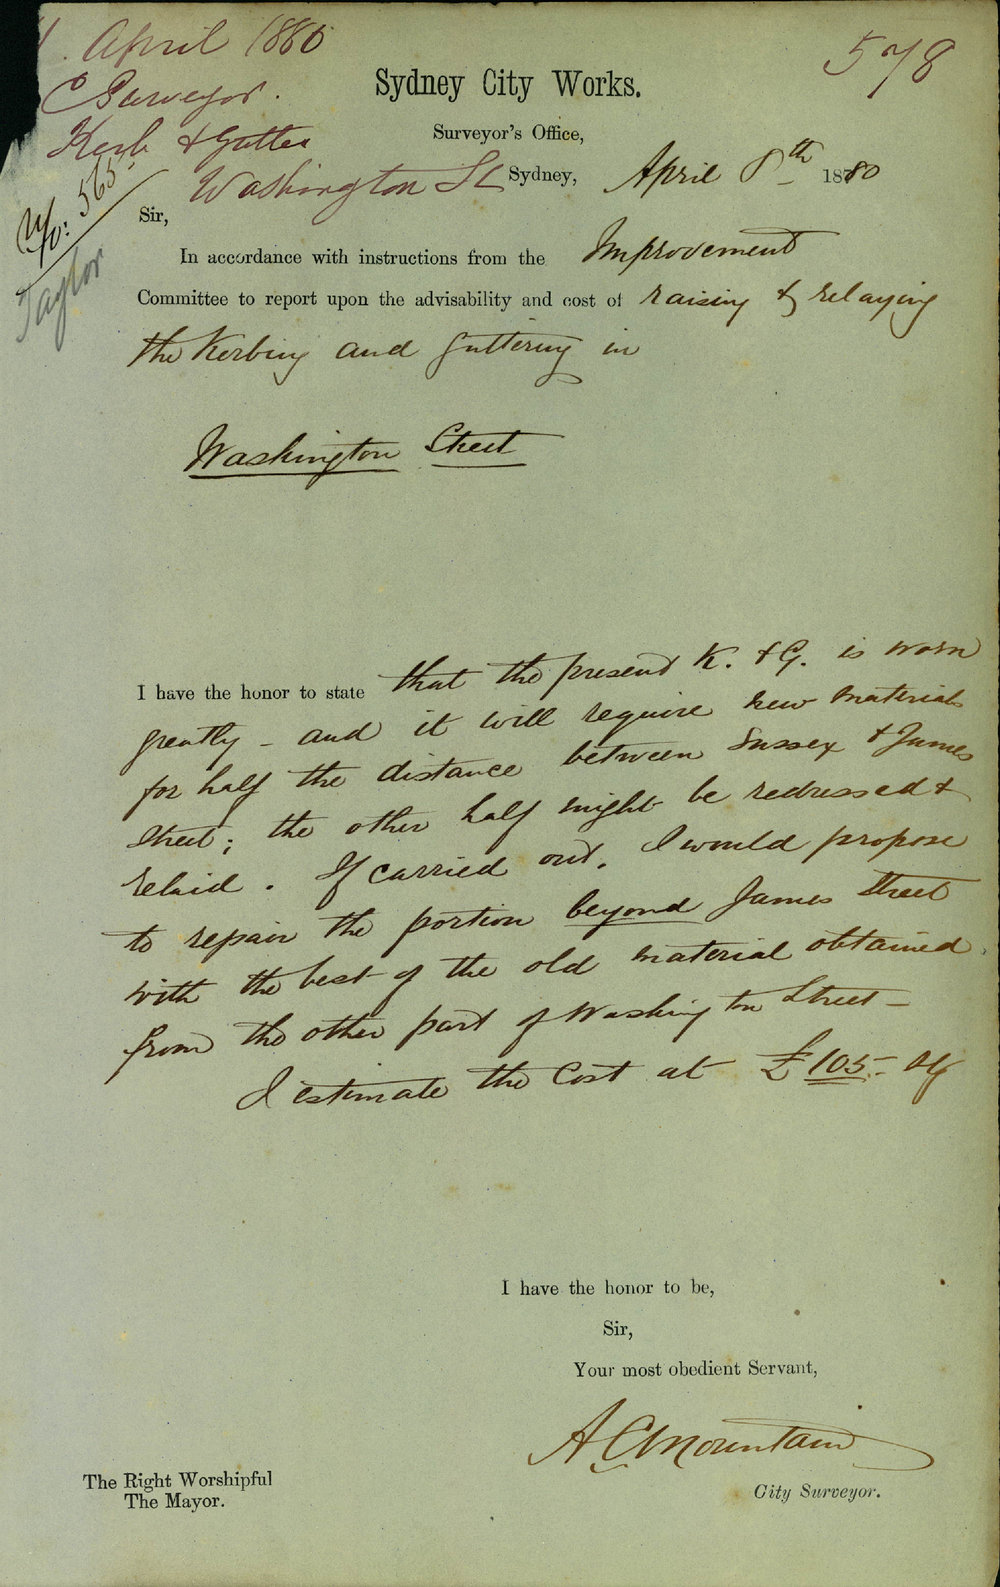 April 1880
C Surveyor.
Kerb & Gutter
Washington St
578
Sydney City Works.
Surveyor's Office,
Sydney, April 8th 1880
No: 565
Taylor
Sir,
In accordance with instructions from the Improvement
Committee to report upon the advisability and cost of raising & relaying
the Kerbing and guttering in
Washington Street
I have the honor to state that the present K. & G. is worn
greatly - and it will require new materials
for half the distance between Sussex & James
Street; the other half might be redressed &
relaid. If carried out, I would propose
to repair the portion beyond James Street
with the best of the old material obtained
from the other part of Washington Street -
I estimate the Cost at £105.-
I have the honor to be,
Sir,
Your most obedient Servant,
A C Mountain
City Surveyor.
The Right Worshipful
The Mayor.